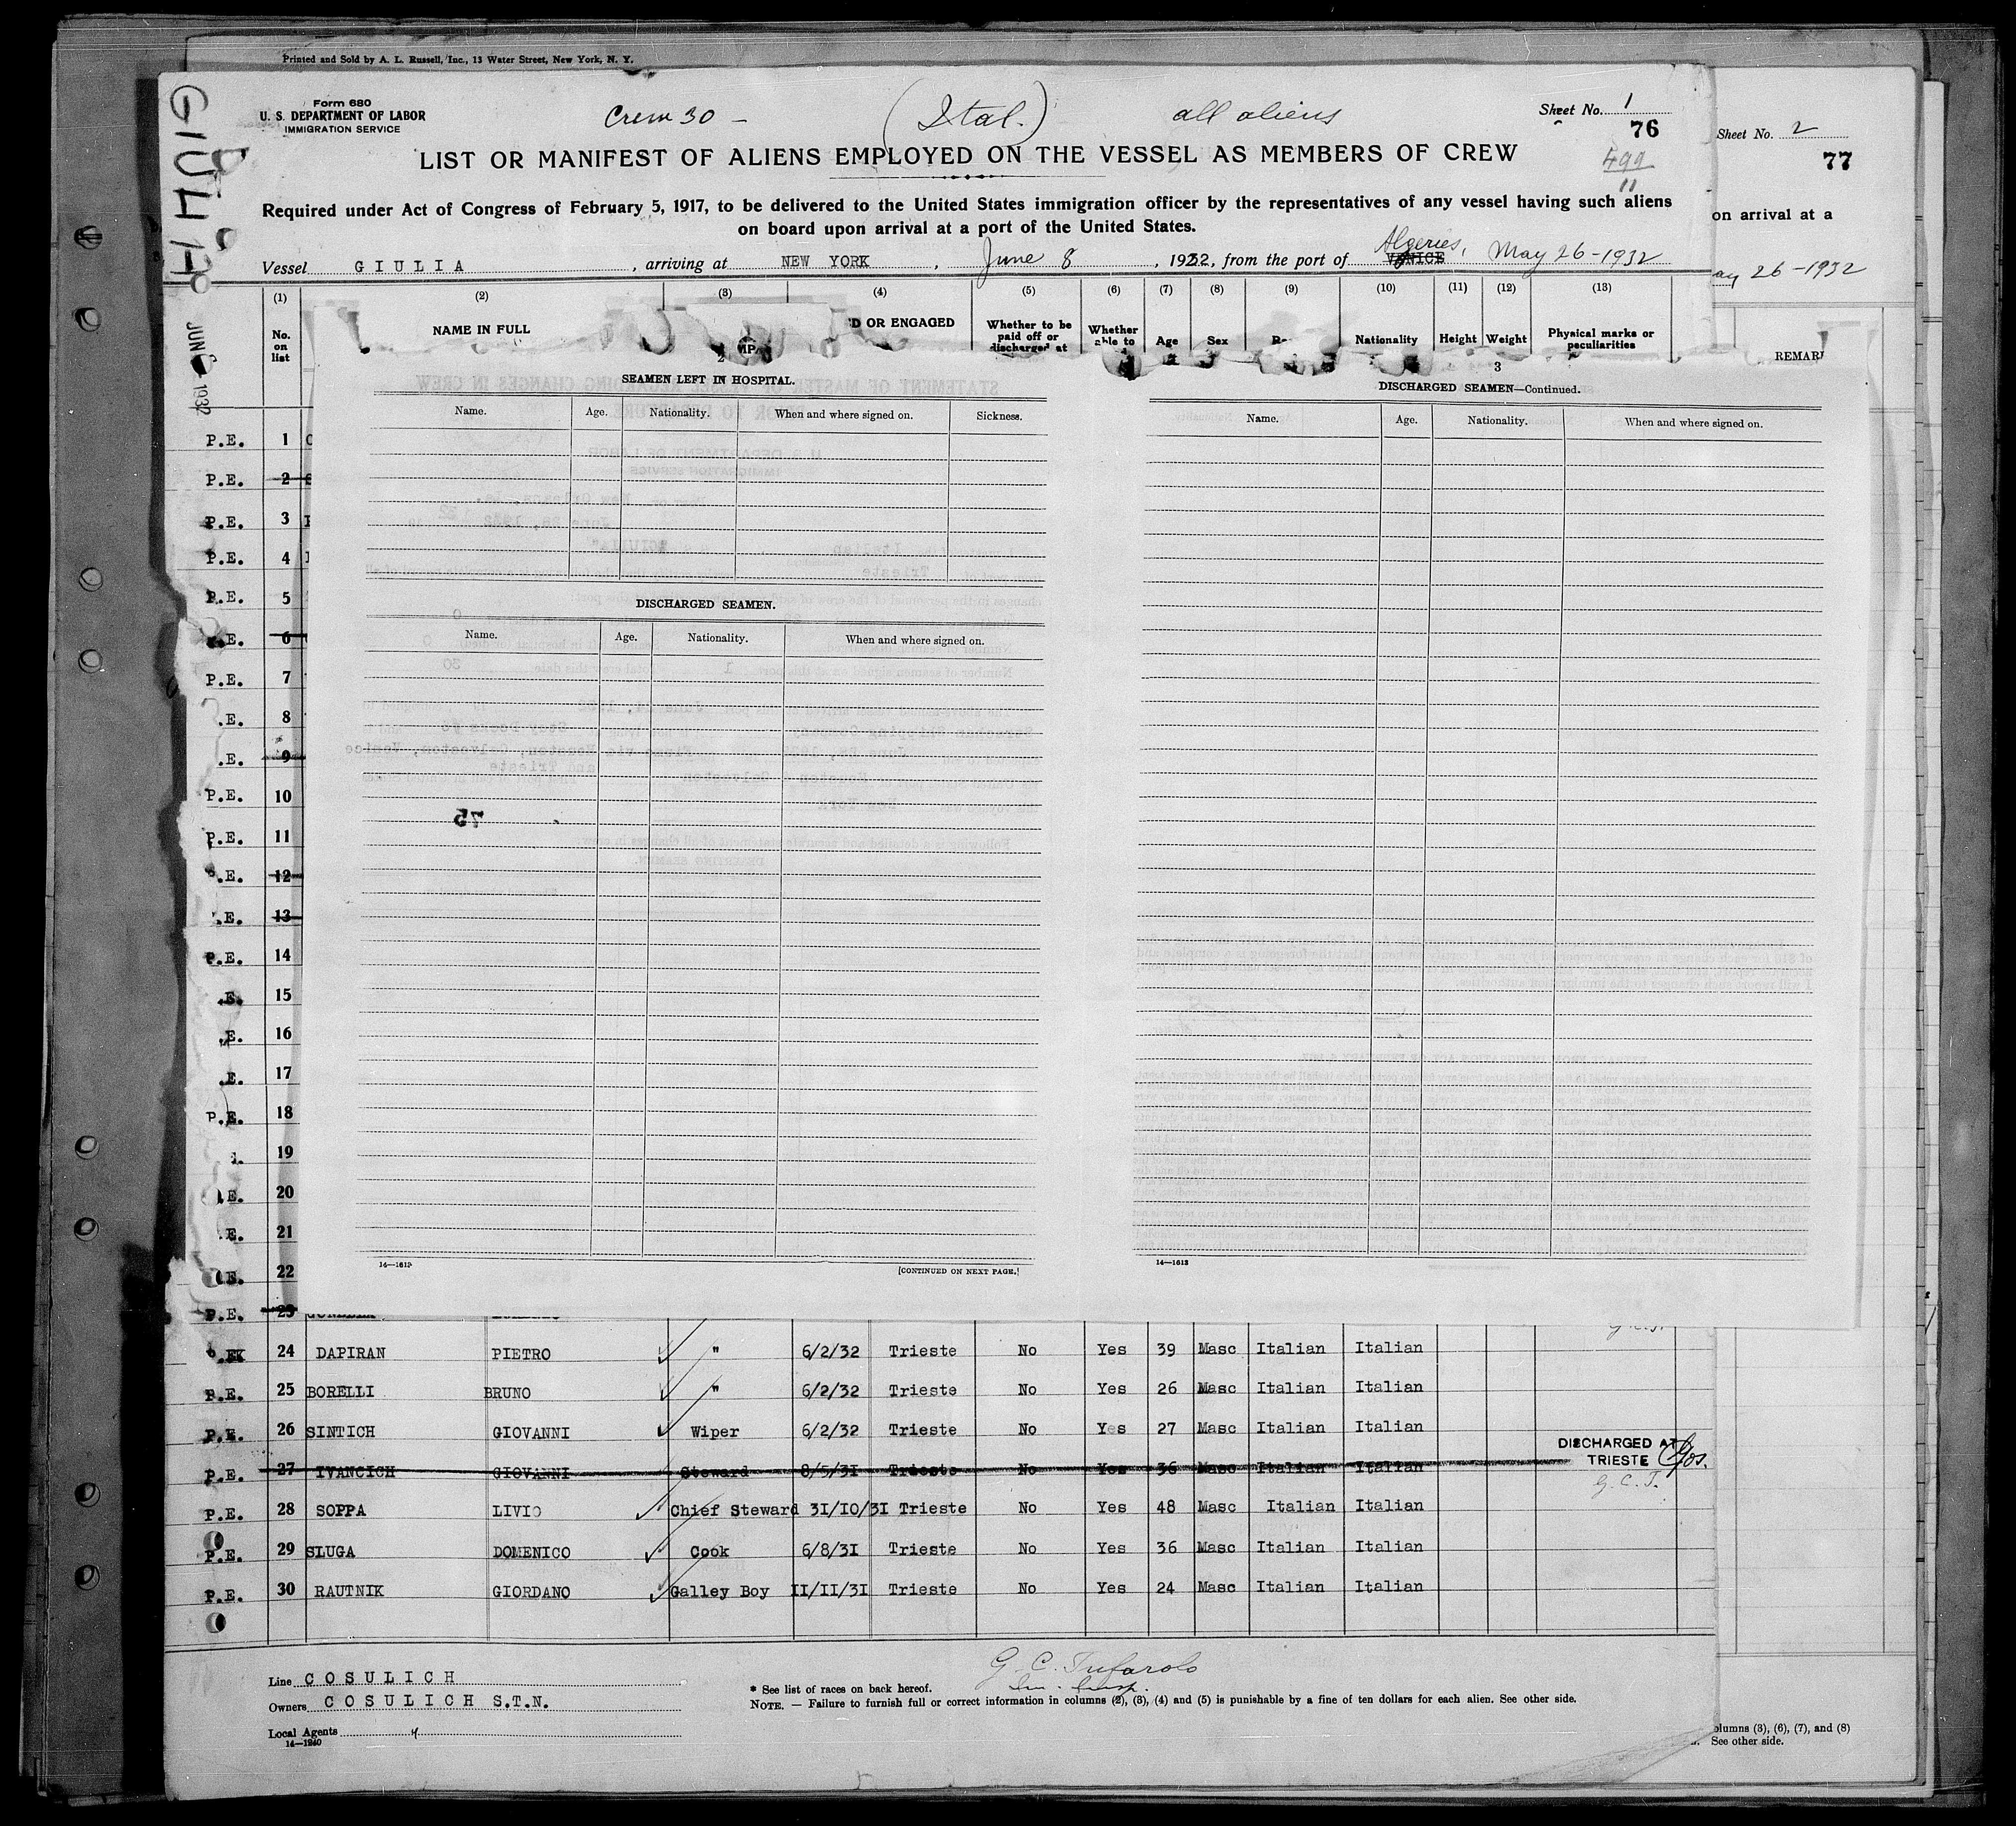 Printed and Sold by A. L. Russell, Inc., 13 Water Street, New York, N. Y.
GIULIA
Form 680
U. S. DEPARTMENT OF LABOR
IMMIGRATION SERVICE
Crew 30 - (Ital.) all aliens
Sheet No. 1
76
499
11
Sheet No. 2
77
LIST OR MANIFEST OF ALIENS EMPLOYED ON THE VESSEL AS MEMBERS OF CREW
Required under Act of Congress of February 5, 1917, to be delivered to the United States immigration officer by the representatives of any vessel having such aliens
on board upon arrival at a port of the United States.
on arrival at a
Algeries,
Vessel GIULIA, arriving at NEW YORK, June 8, 1932, from the port of VENICE May 26-1932
ay 26-1932
(1) (2) (3) (4) (5) (6) (7) (8) (9) (10) (11) (12) (13)
No. on list
NAME IN FULL
D OR ENGAGED
Whether to be paid off or discharged at
Whether able to
Age Sex
Nationality Height Weight
Physical marks or peculiarities
REMAR
JUN 1932
2
SEAMEN LEFT IN HOSPITAL.
Name. Age. Nationality. When and where signed on. Sickness.
DISCHARGED SEAMEN.
Name. Age. Nationality. When and where signed on.
75
14—1613
[CONTINUED ON NEXT PAGE.]
3
DISCHARGED SEAMEN—Continued.
Name. Age. Nationality. When and where signed on.
14—1613
P.E. 1
P.E. 2
P.E. 3
P.E. 4
P.E. 5
.E. 6
P.E. 7
.E. 8
.E. 9
P.E. 10
P.E. 11
.E. 12
.E. 13
P.E. 14
.E. 15
.E. 16
.E. 17
P.E. 18
19
.E. 20
.E. 21
.E. 22
P.E. 23
24 DAPIRAN PIETRO " 6/2/32 Trieste No Yes 39 Masc Italian Italian
P.E. 25 BORELLI BRUNO " 6/2/32 Trieste No Yes 26 Masc Italian Italian
P.E. 26 SINTICH GIOVANNI Wiper 6/2/32 Trieste No Yes 27 Masc Italian Italian
P.E. 27 IVANCICH GIOVANNI Steward 8/5/31 Trieste No Yes 36 Masc Italian Italian DISCHARGED AT TRIESTE
G.C.T.
P.E. 28 SOPPA LIVIO Chief Steward 31/10/31 Trieste No Yes 48 Masc Italian Italian
P.E. 29 SLUGA DOMENICO Cook 6/8/31 Trieste No Yes 36 Masc Italian Italian
P.E. 30 RAUTNIK GIORDANO Galley Boy II/II/31 Trieste No Yes 24 Masc Italian Italian
Line COSULICH
Owners COSULICH S.T.N.
Local Agents
14—1240
G. C. Tufarolo
Im. Insp.
* See list of races on back hereof.
NOTE. — Failure to furnish full or correct information in columns (2), (3), (4) and (5) is punishable by a fine of ten dollars for each alien. See other side.
olumns (3), (6), (7), and (8)
See other side.